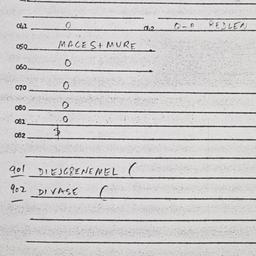 041 0 042 0-0 REDLEN
050 MACES+MURE
060 0
070 0
080 0
081 0
082
901 DIEJGRENEMEL (
902 DIVASE (